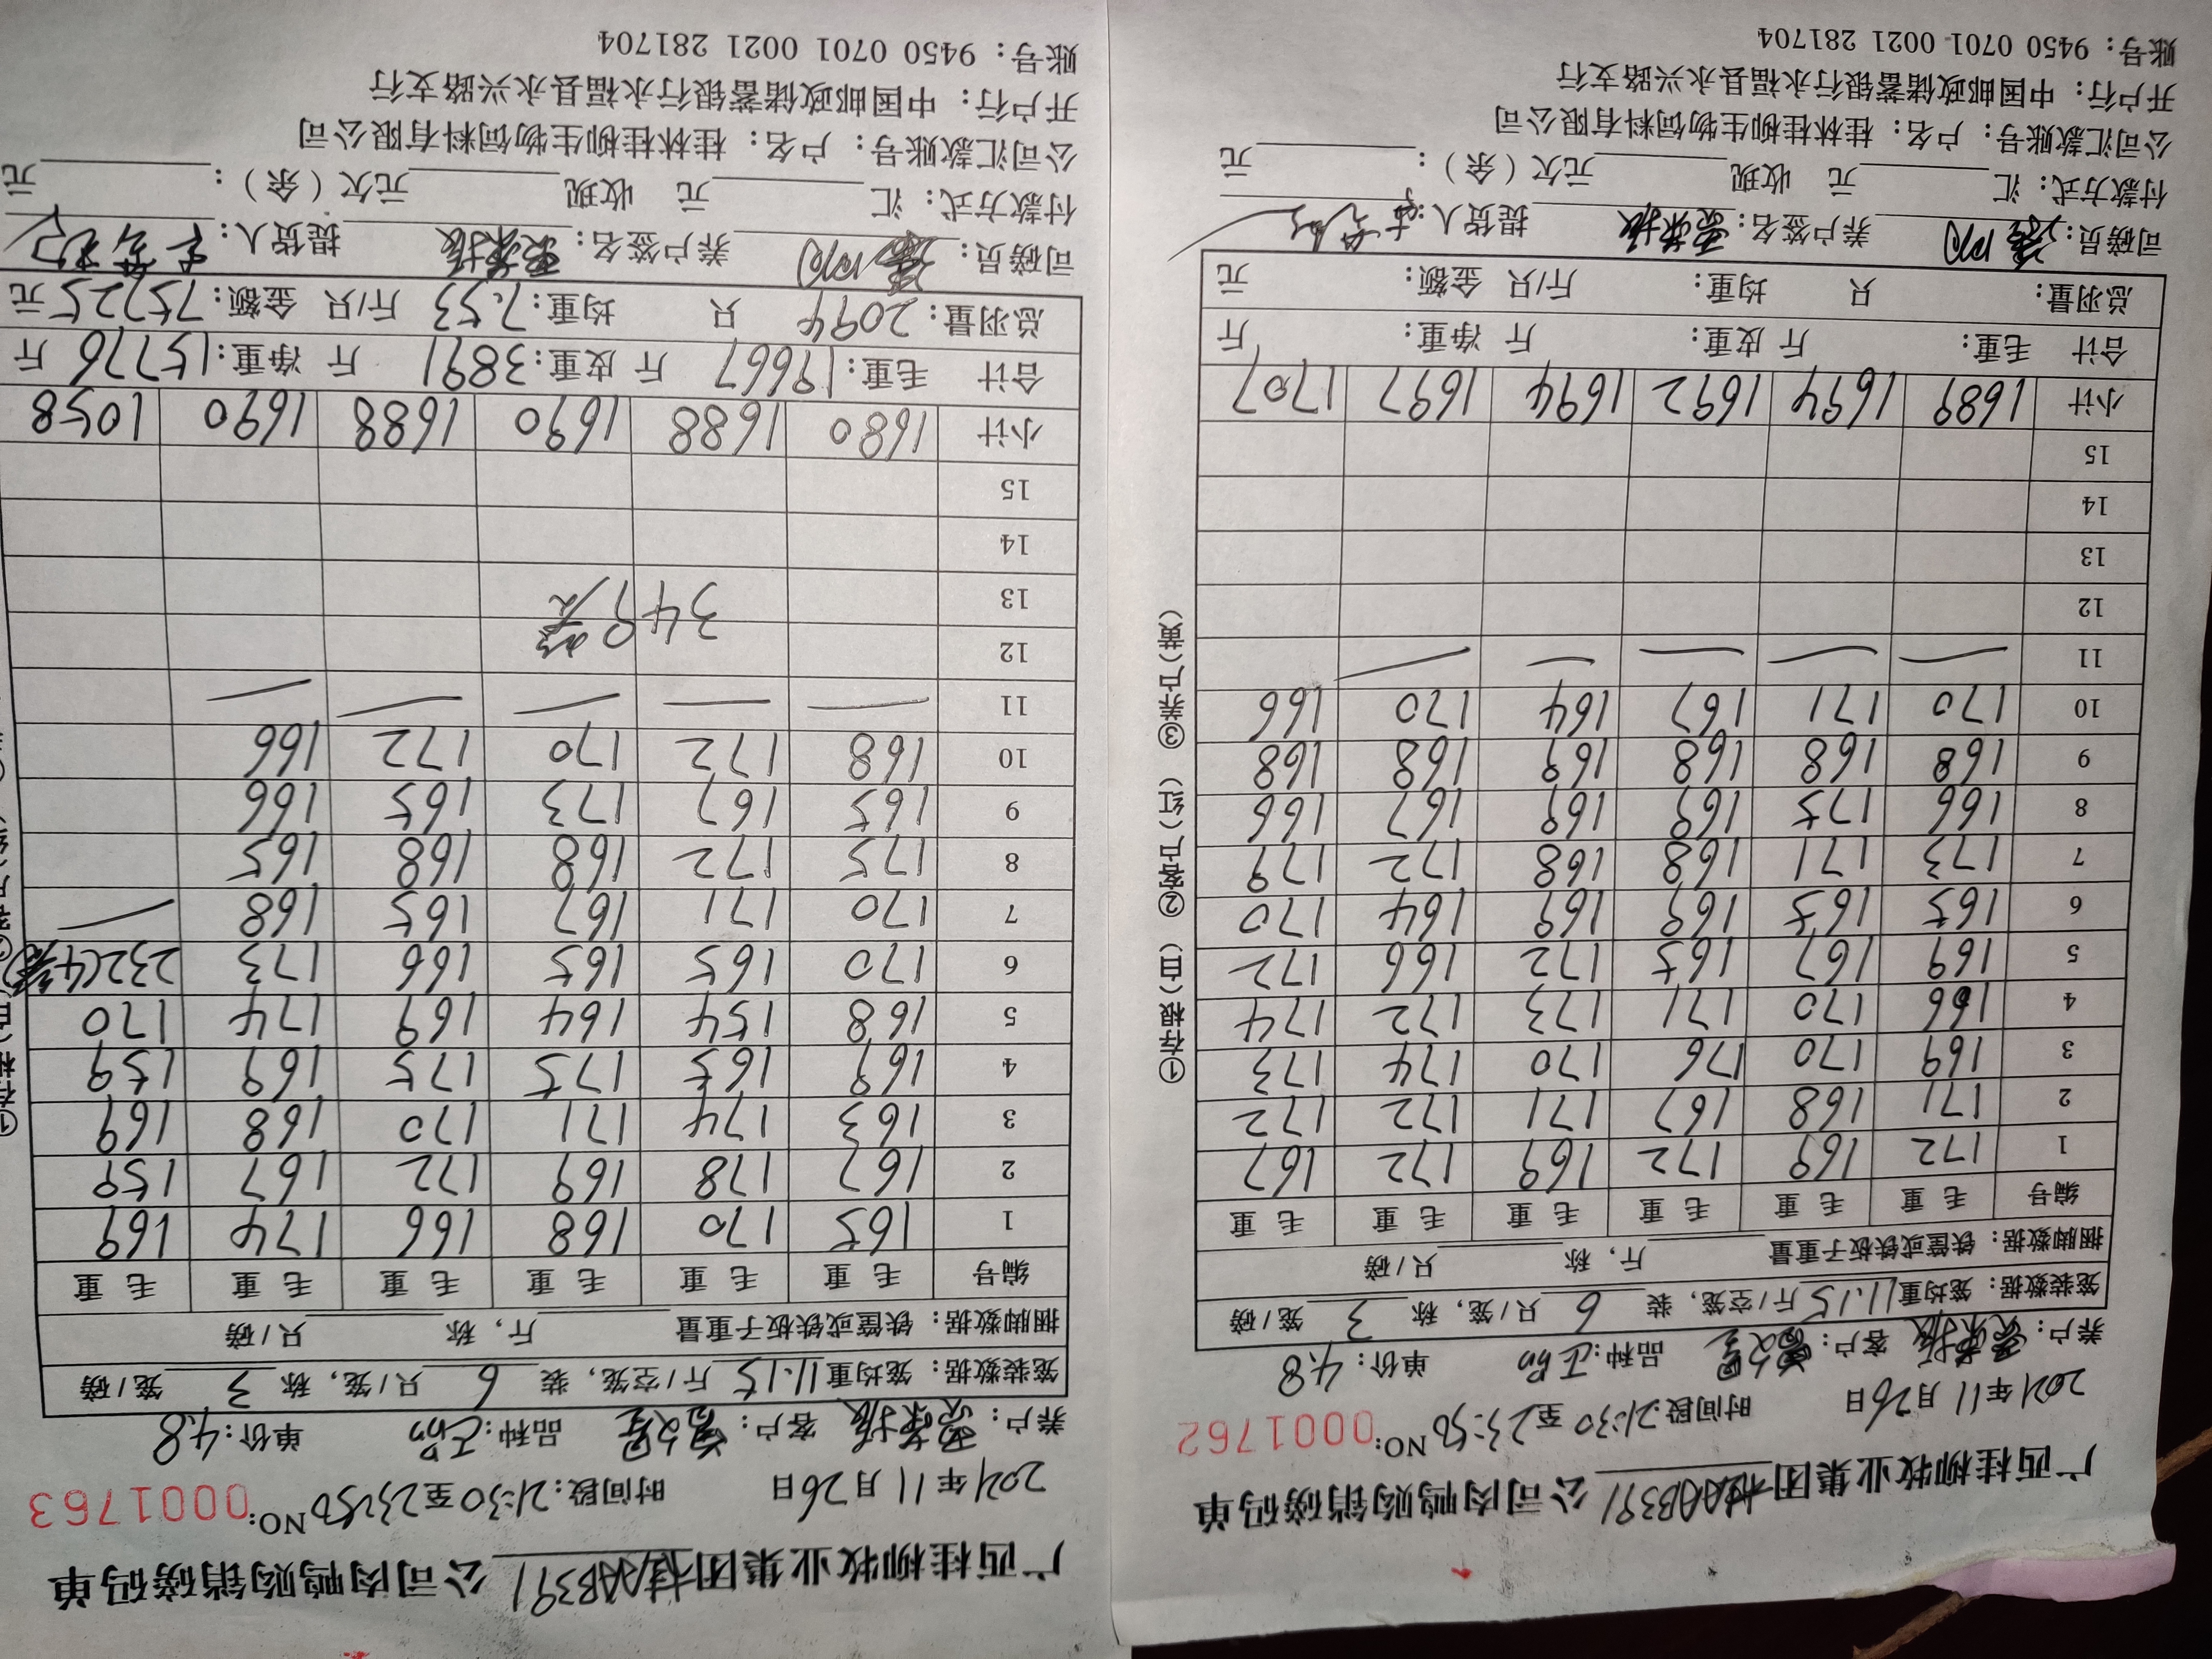 广西桂柳牧业集团桂AAB391公司肉鸭购销磅码单
2021年11月26日 时间段:21:30至23:50 NO:0001762
养户: 客户: 品种: 单价:4.8
笼装数据: 笼均重11.15斤/空笼, 装 6 只/笼, 称 3 笼/磅
捆脚数据: 铁筐或铁板子重量 斤, 称 只/磅
编号 毛重 毛重 毛重 毛重 毛重 毛重
1 172 169 172 169 172 167
2 171 168 167 171 172 172
3 169 170 176 170 174 173
4 166 170 171 173 172 174
5 169 167 165 172 166 172
6 165 165 169 169 164 170
7 173 171 168 168 172 179
8 166 175 169 169 167 166
9 168 168 168 169 168 168
10 170 171 167 164 170 166
11
12
13
14
15
小计 1689 1694 1692 1694 1697 1707
合计 毛重: 斤 皮重: 斤 净重: 斤
总羽量: 只 均重: 斤/只 金额: 元
司磅员: 养户签名: 提货人:
付款方式: 汇 元 收现 元欠(余): 元
公司汇款账号: 户名: 桂林桂柳生物饲料有限公司
开户行: 中国邮政储蓄银行永福县永兴路支行
账号: 9450 0701 0021 281704
①存根(白) ②客户(红) ③养户(黄)
广西桂柳牧业集团桂AAB391公司肉鸭购销磅码单
2021年11月26日 时间段:21:30至23:50 NO:0001763
养户: 客户: 品种: 单价:4.8
笼装数据: 笼均重11.15斤/空笼, 装 6 只/笼, 称 3 笼/磅
捆脚数据: 铁筐或铁板子重量 斤, 称 只/磅
编号 毛重 毛重 毛重 毛重 毛重 毛重
1 165 170 168 166 174 169
2 167 178 169 172 167 159
3 163 174 171 170 168 169
4 169 165 175 175 169 159
5 168 154 164 169 174 170
6 170 165 165 166 173 232(4笼)
7 170 171 167 165 168
8 175 172 168 168 165
9 165 167 173 165 166
10 168 172 170 172 166
11
12
13 349笼
14
15
小计 1680 1688 1690 1688 1690 1058
合计 毛重:19667 斤 皮重:3891 斤 净重:15776 斤
总羽量:2094 只 均重:7.53 斤/只 金额:75725元
司磅员: 养户签名: 提货人:
付款方式: 汇 元 收现 元欠(余): 元
公司汇款账号: 户名: 桂林桂柳生物饲料有限公司
开户行: 中国邮政储蓄银行永福县永兴路支行
账号: 9450 0701 0021 281704